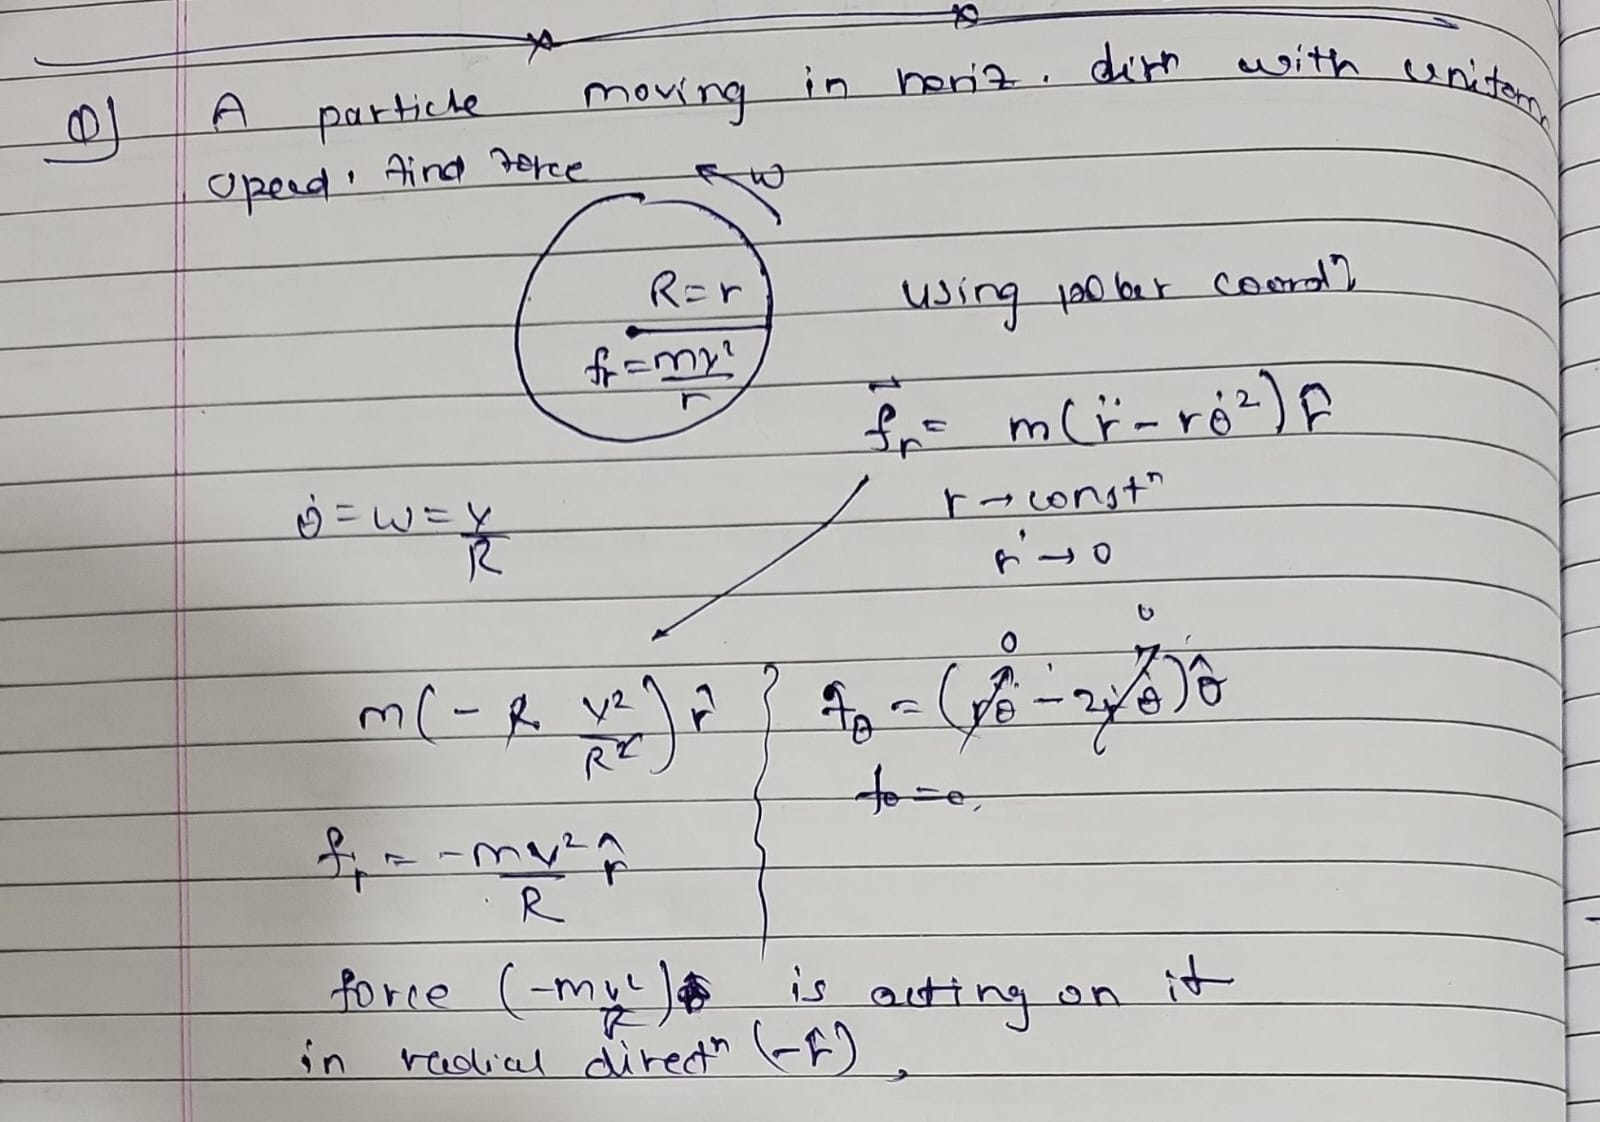 Q] A particle moving in horiz. dirn with uniform
speed, find force
ω
R=r
fr = mv²/r
using polar coordⁿ
f⃗r = m(r̈ - rθ̇²) r̂
r → constⁿ
ṙ → 0
θ̇ = ω = v/R
m(-R v²/R²) r̂
fθ = (rθ̈ - 2ṙθ̇) θ̂
0 0
fθ = 0,
fr = -mv²/R r̂
force (-mv²/R) is acting on it
in radial directⁿ (-r̂),